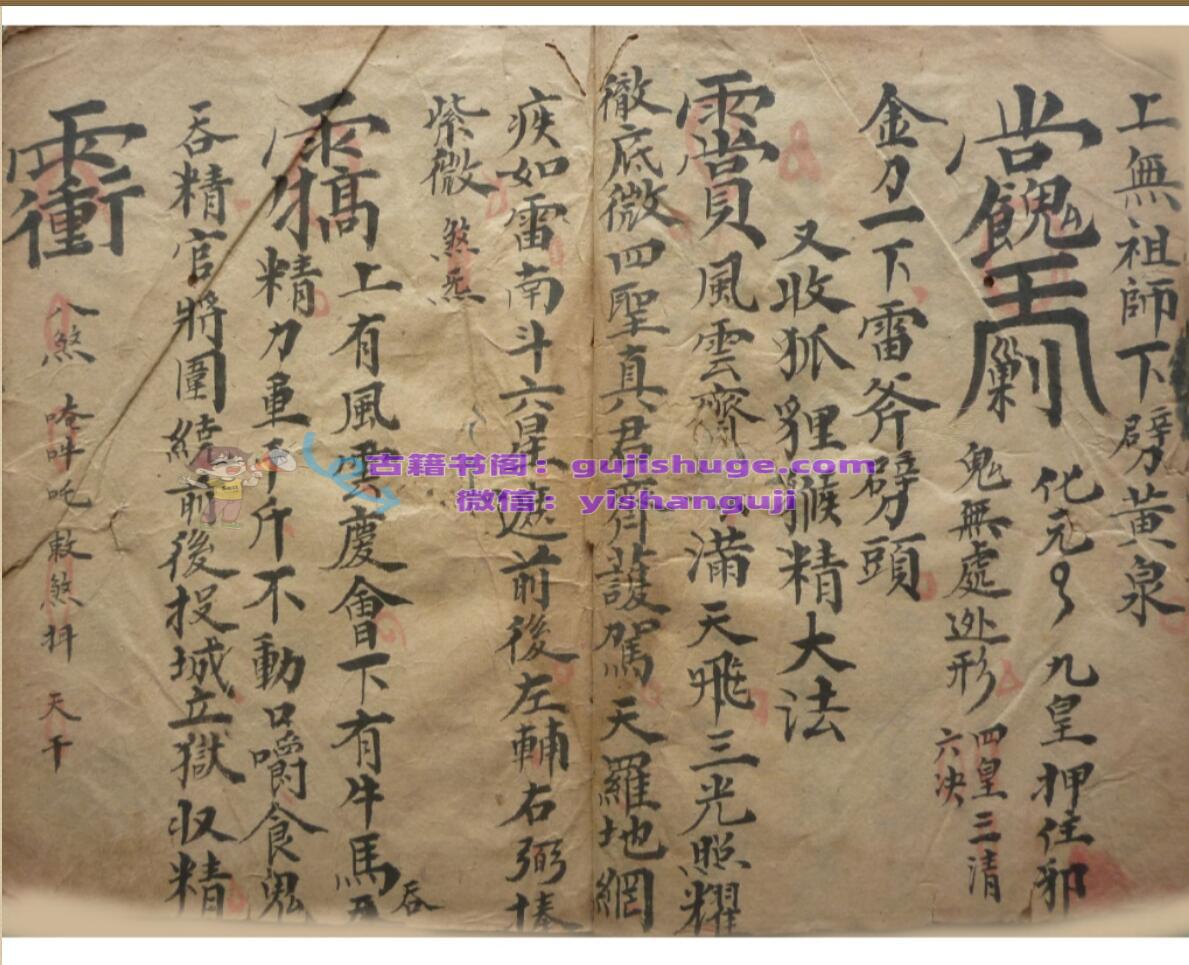 上無祖師下劈黃泉
化元 九皇押住邪
鬼無處迯形 四皇三清
六决
金刀一下雷斧劈頭
又收狐狸猴精大法
風雲齊 滿天飛三光照耀
徹底微四聖真君 護駕天羅地網
疾如雷南斗六星 前後左輔右弼
紫微 煞炁
上有風雲慶會下有牛馬 吞
精刀重千斤不動口嚼食鬼
吞精官將圍繞前後投城立獄收精
八煞 唵吽吒敕煞 天干
古籍书阁：gujishuge.com
微信：yishanguji